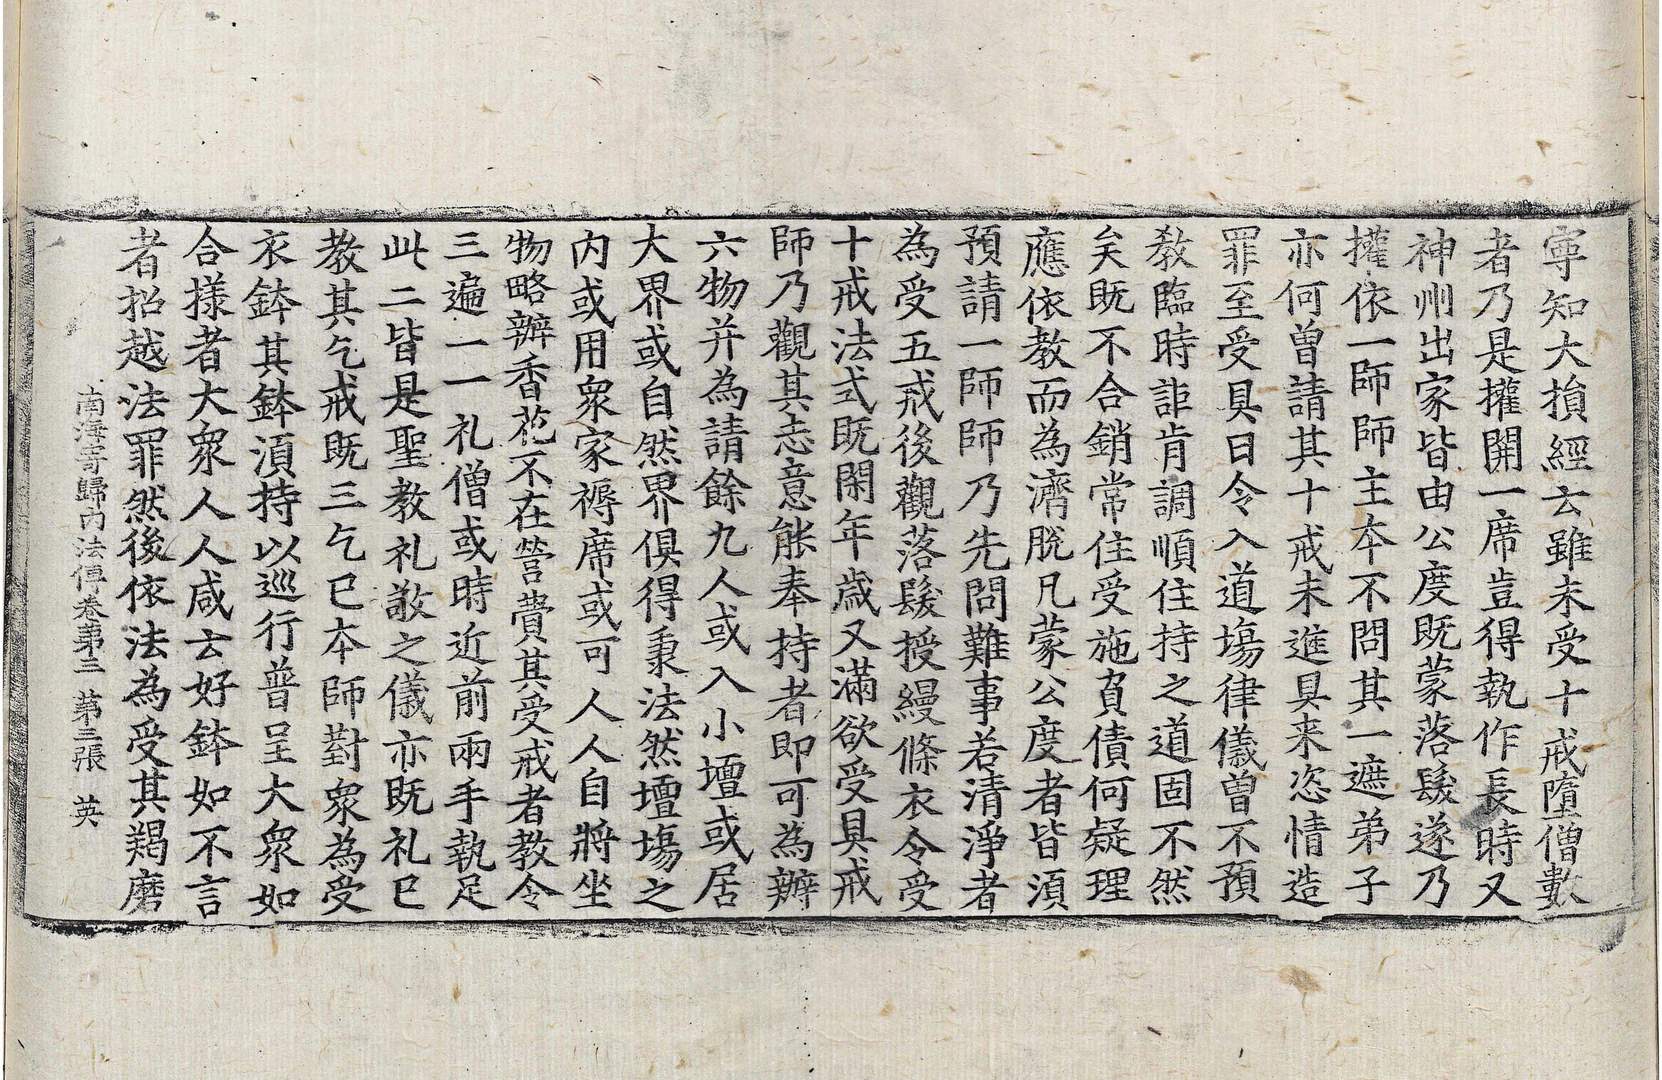 寧知大損經云雖未受十戒墮僧數
者乃是攉開一席豈得執作長時又
神州出家皆由公度既蒙落髮遂乃
攉依一師師主本不問其一遮弟子
亦何曾請其十戒未進具来恣情造
罪至受具日令入道塲律儀曾不預
教臨時詎肯調順住持之道固不然
矣既不合銷常住受施負債何疑理
應依教而為濟脫凡蒙公度者皆湏
預請一師師乃先問難事若清淨者
為受五戒後觀落髮授縵條衣令受
十戒法式既閑年歲又滿欲受具戒
師乃觀其志意能奉持者即可為辦
六物并為請餘九人或入小壇或居
大界或自然界俱得秉法然壇塲之
内或用衆家褥席或可人人自將坐
物略辦香花不在營費其受戒者教令
三遍一一礼僧或時近前兩手執足
此二皆是聖教礼敬之儀亦既礼已
教其乞戒既三乞已本師對衆為受
衣鉢其鉢湏持以巡行普呈大衆如
合樣者大衆人人咸云好鉢如不言
者招越法罪然後依法為受其羯磨
南海寄歸内法傳卷第三　第三張　英